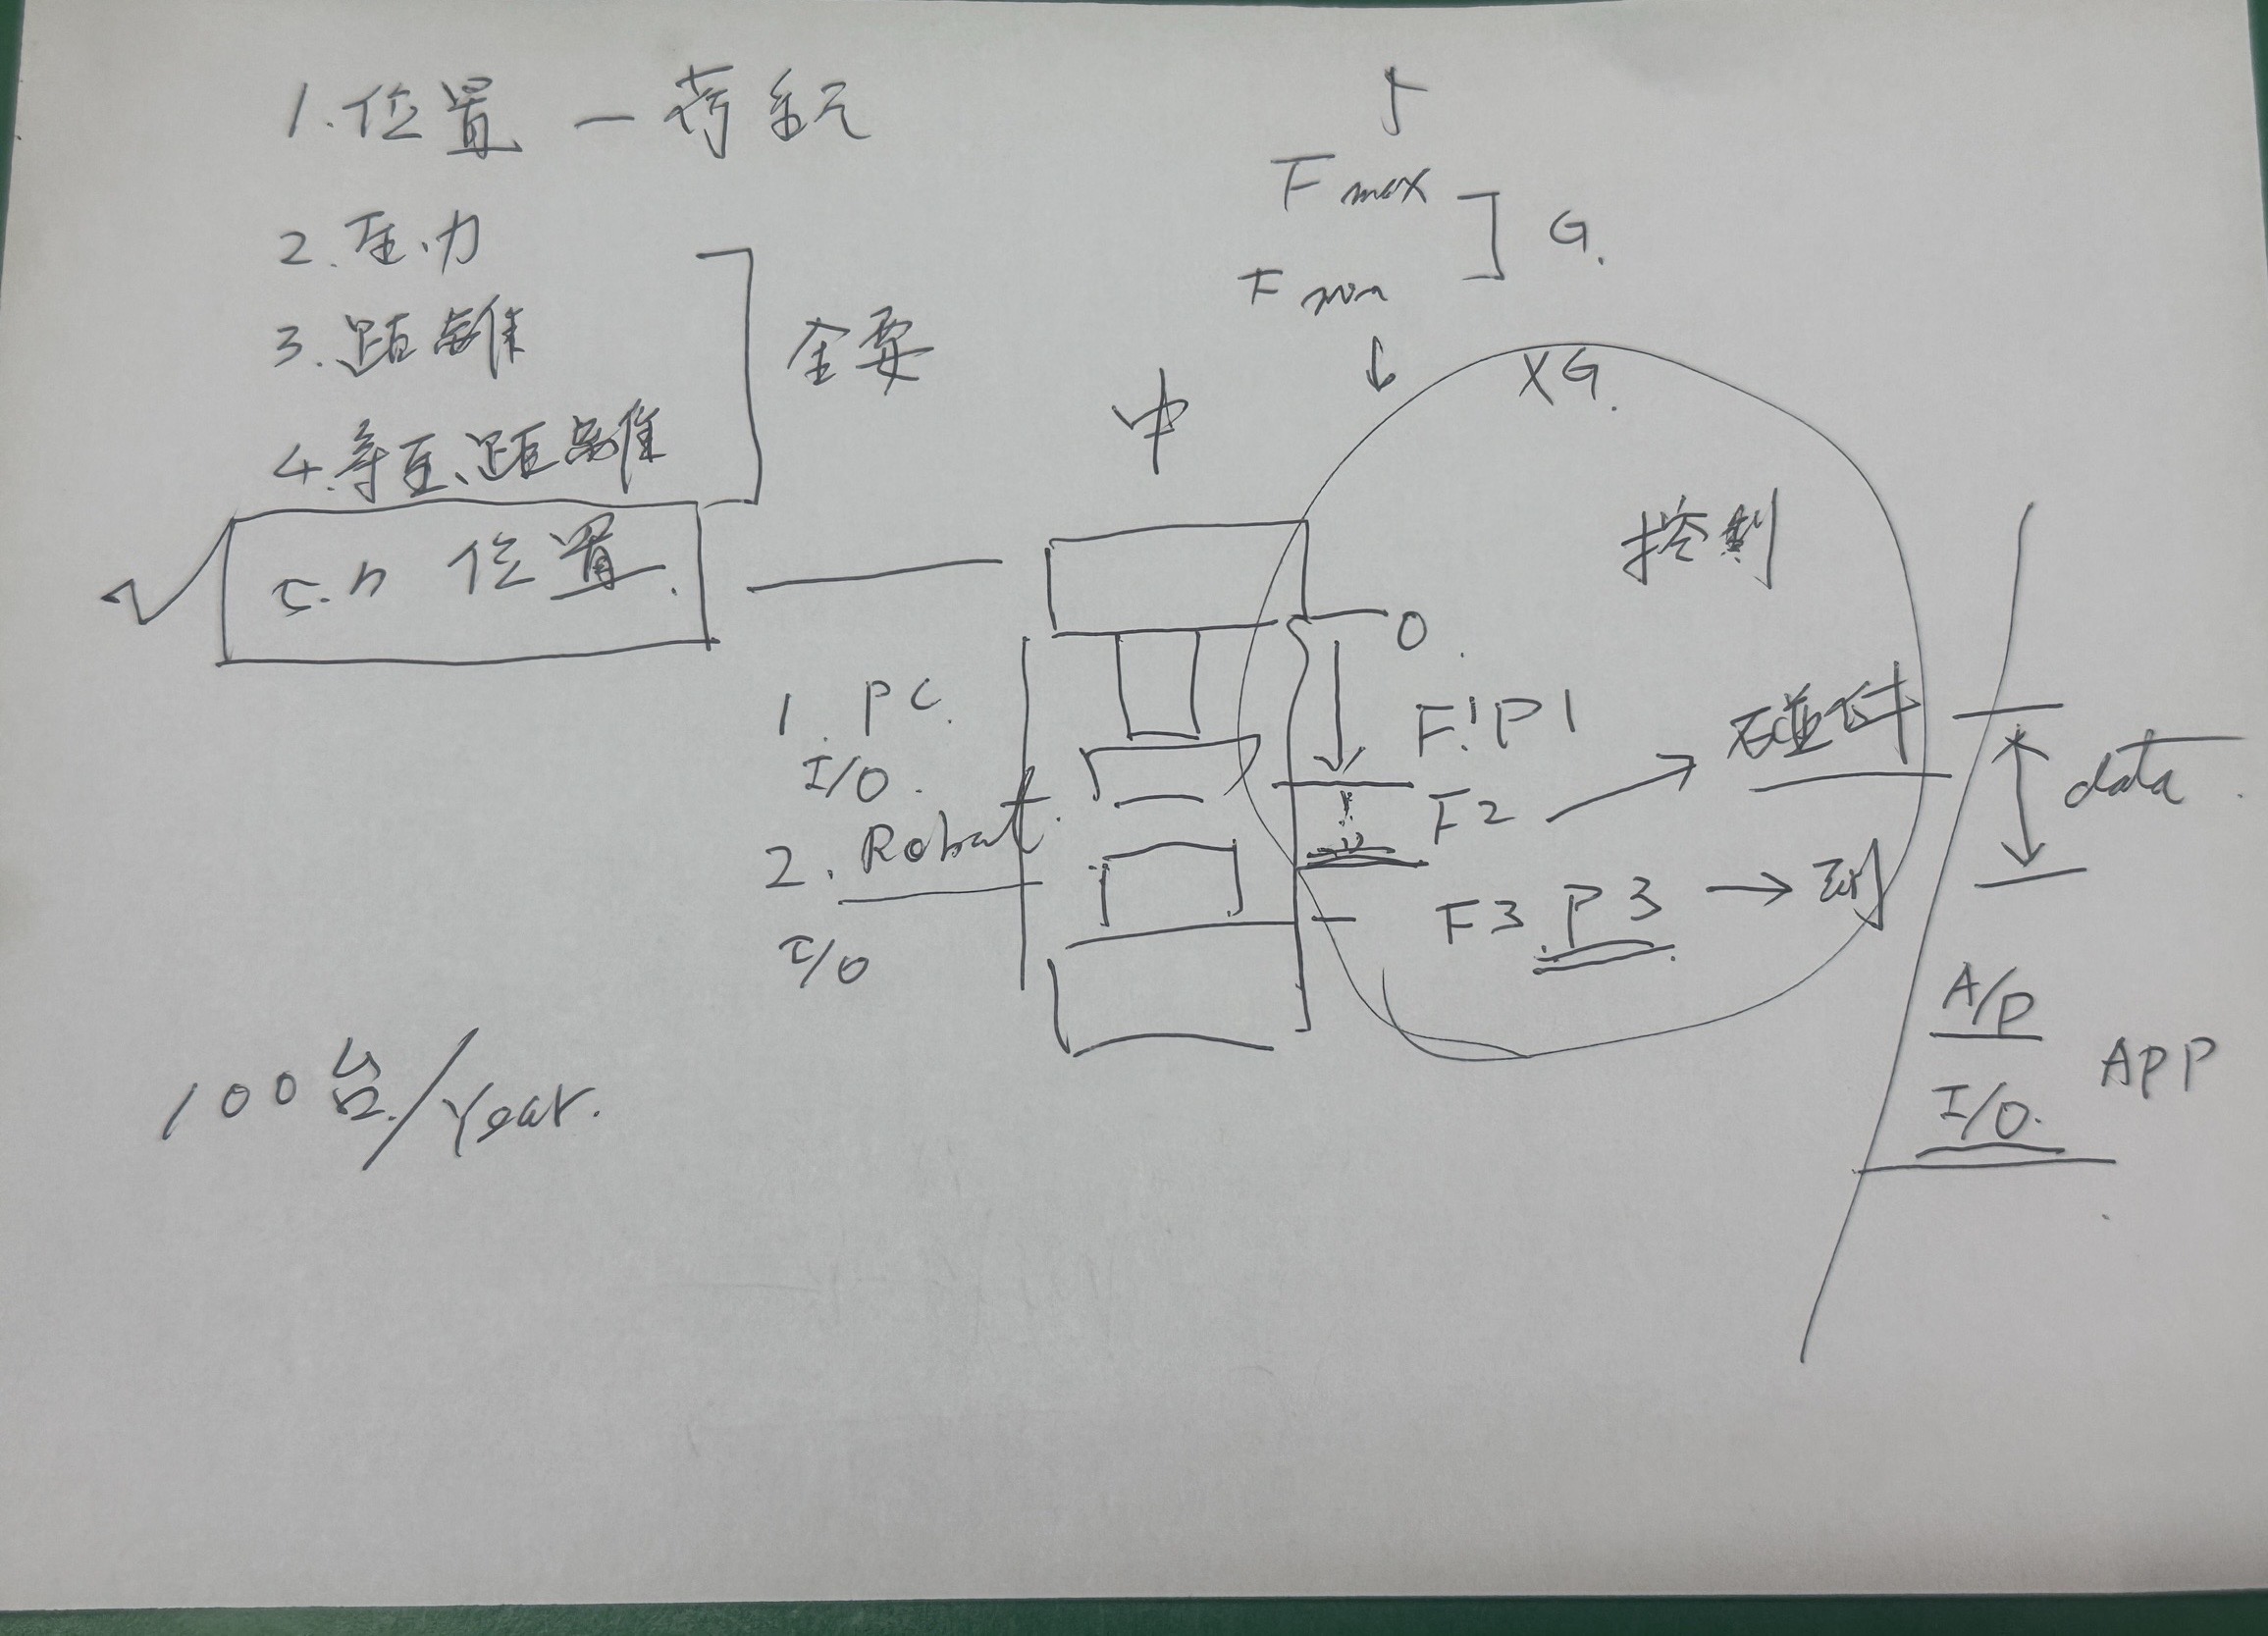 1. 位置 — 荷重元
2. 压力
3. 距離
4. 等压、距離
全要
位置.
F max
F min
G.
XG.
中
控制
O
1. PC.
I/O.
2. Robot.
I/O
F1 P1
F2 → 碰件
F3 P3 → 到
data
A/P
I/O.
APP
100台/Year.